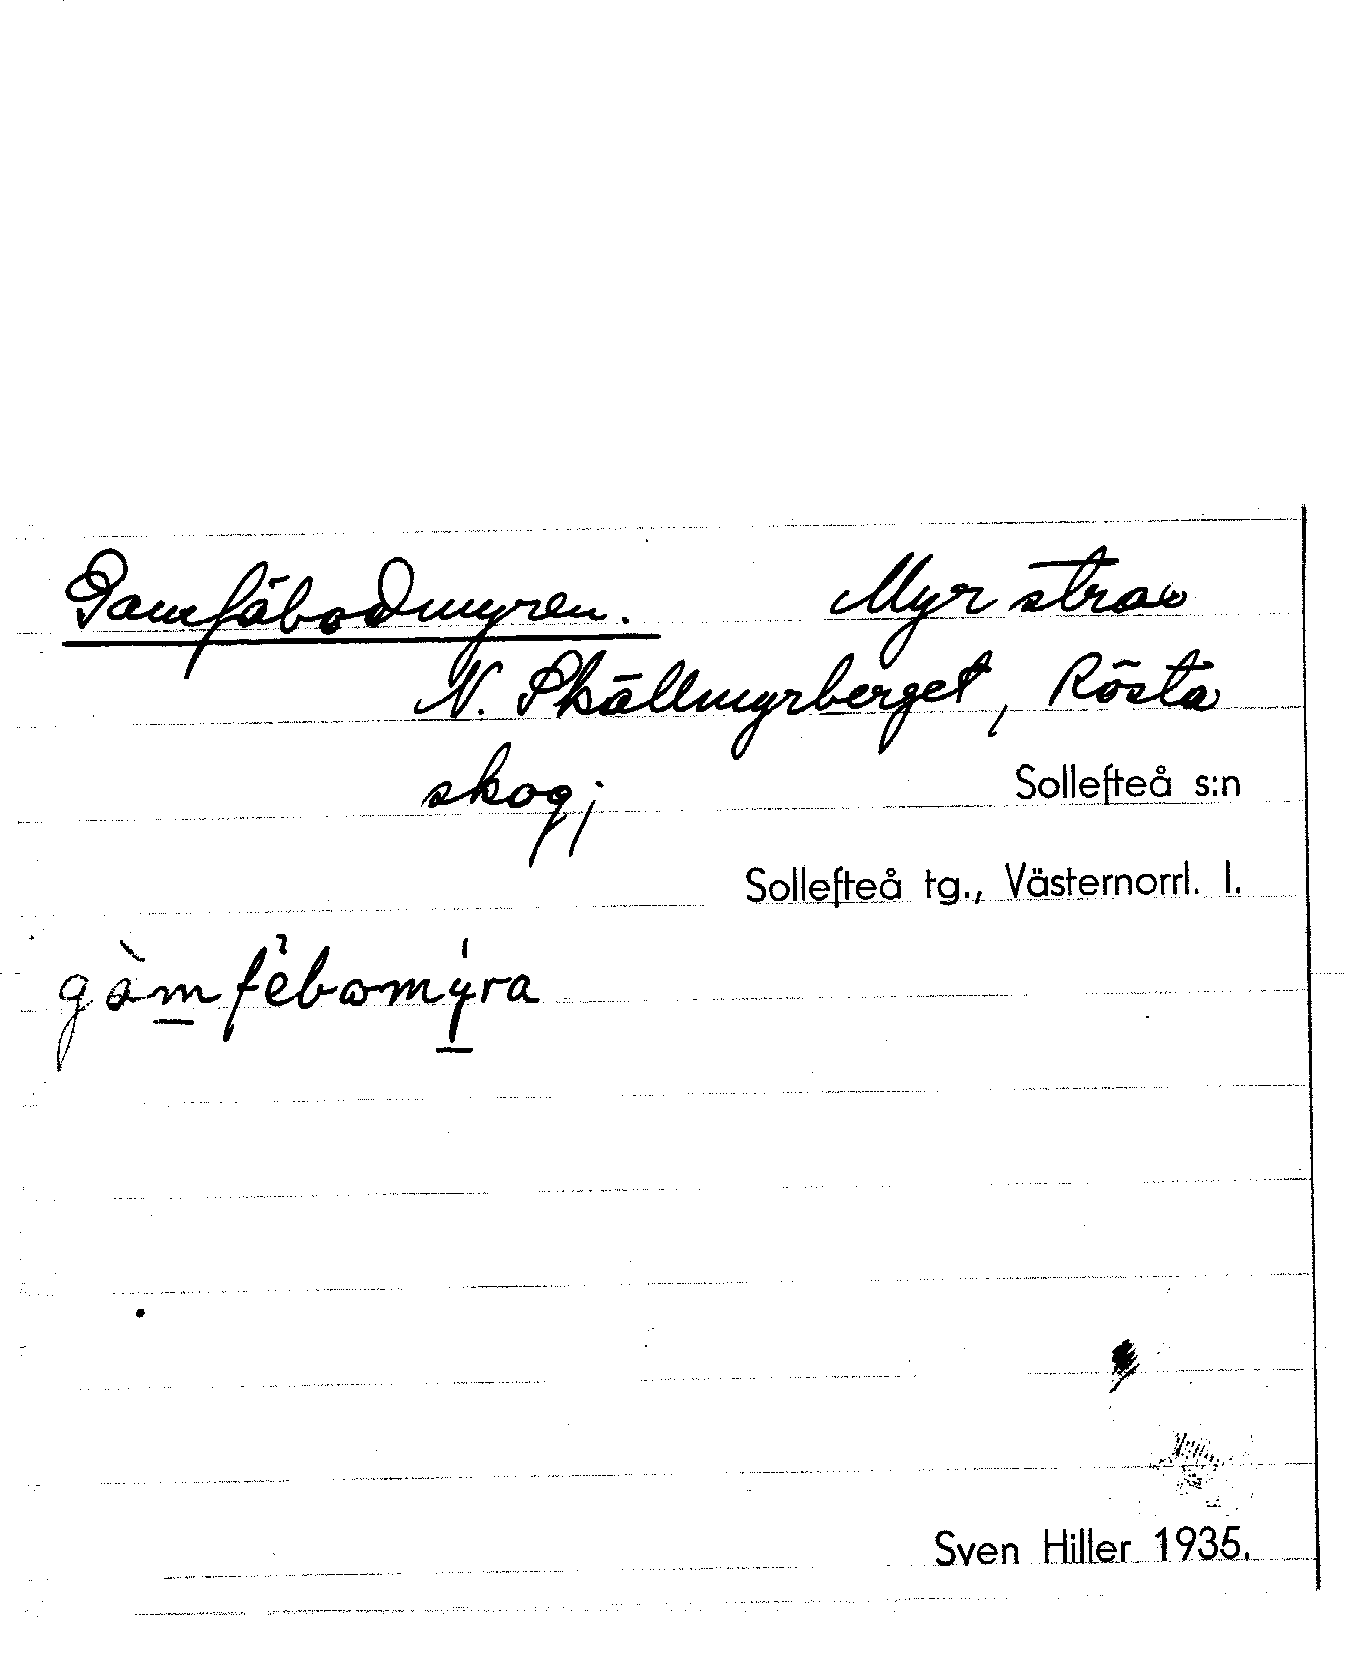 Gamfäbodmyren. Myr strax
N. Skållmyrberget, Rösta
skog;
Sollefteå s:n
Sollefteå tg., Västernorrl. l.
gàmfèbomýra
Sven Hiller 1935.